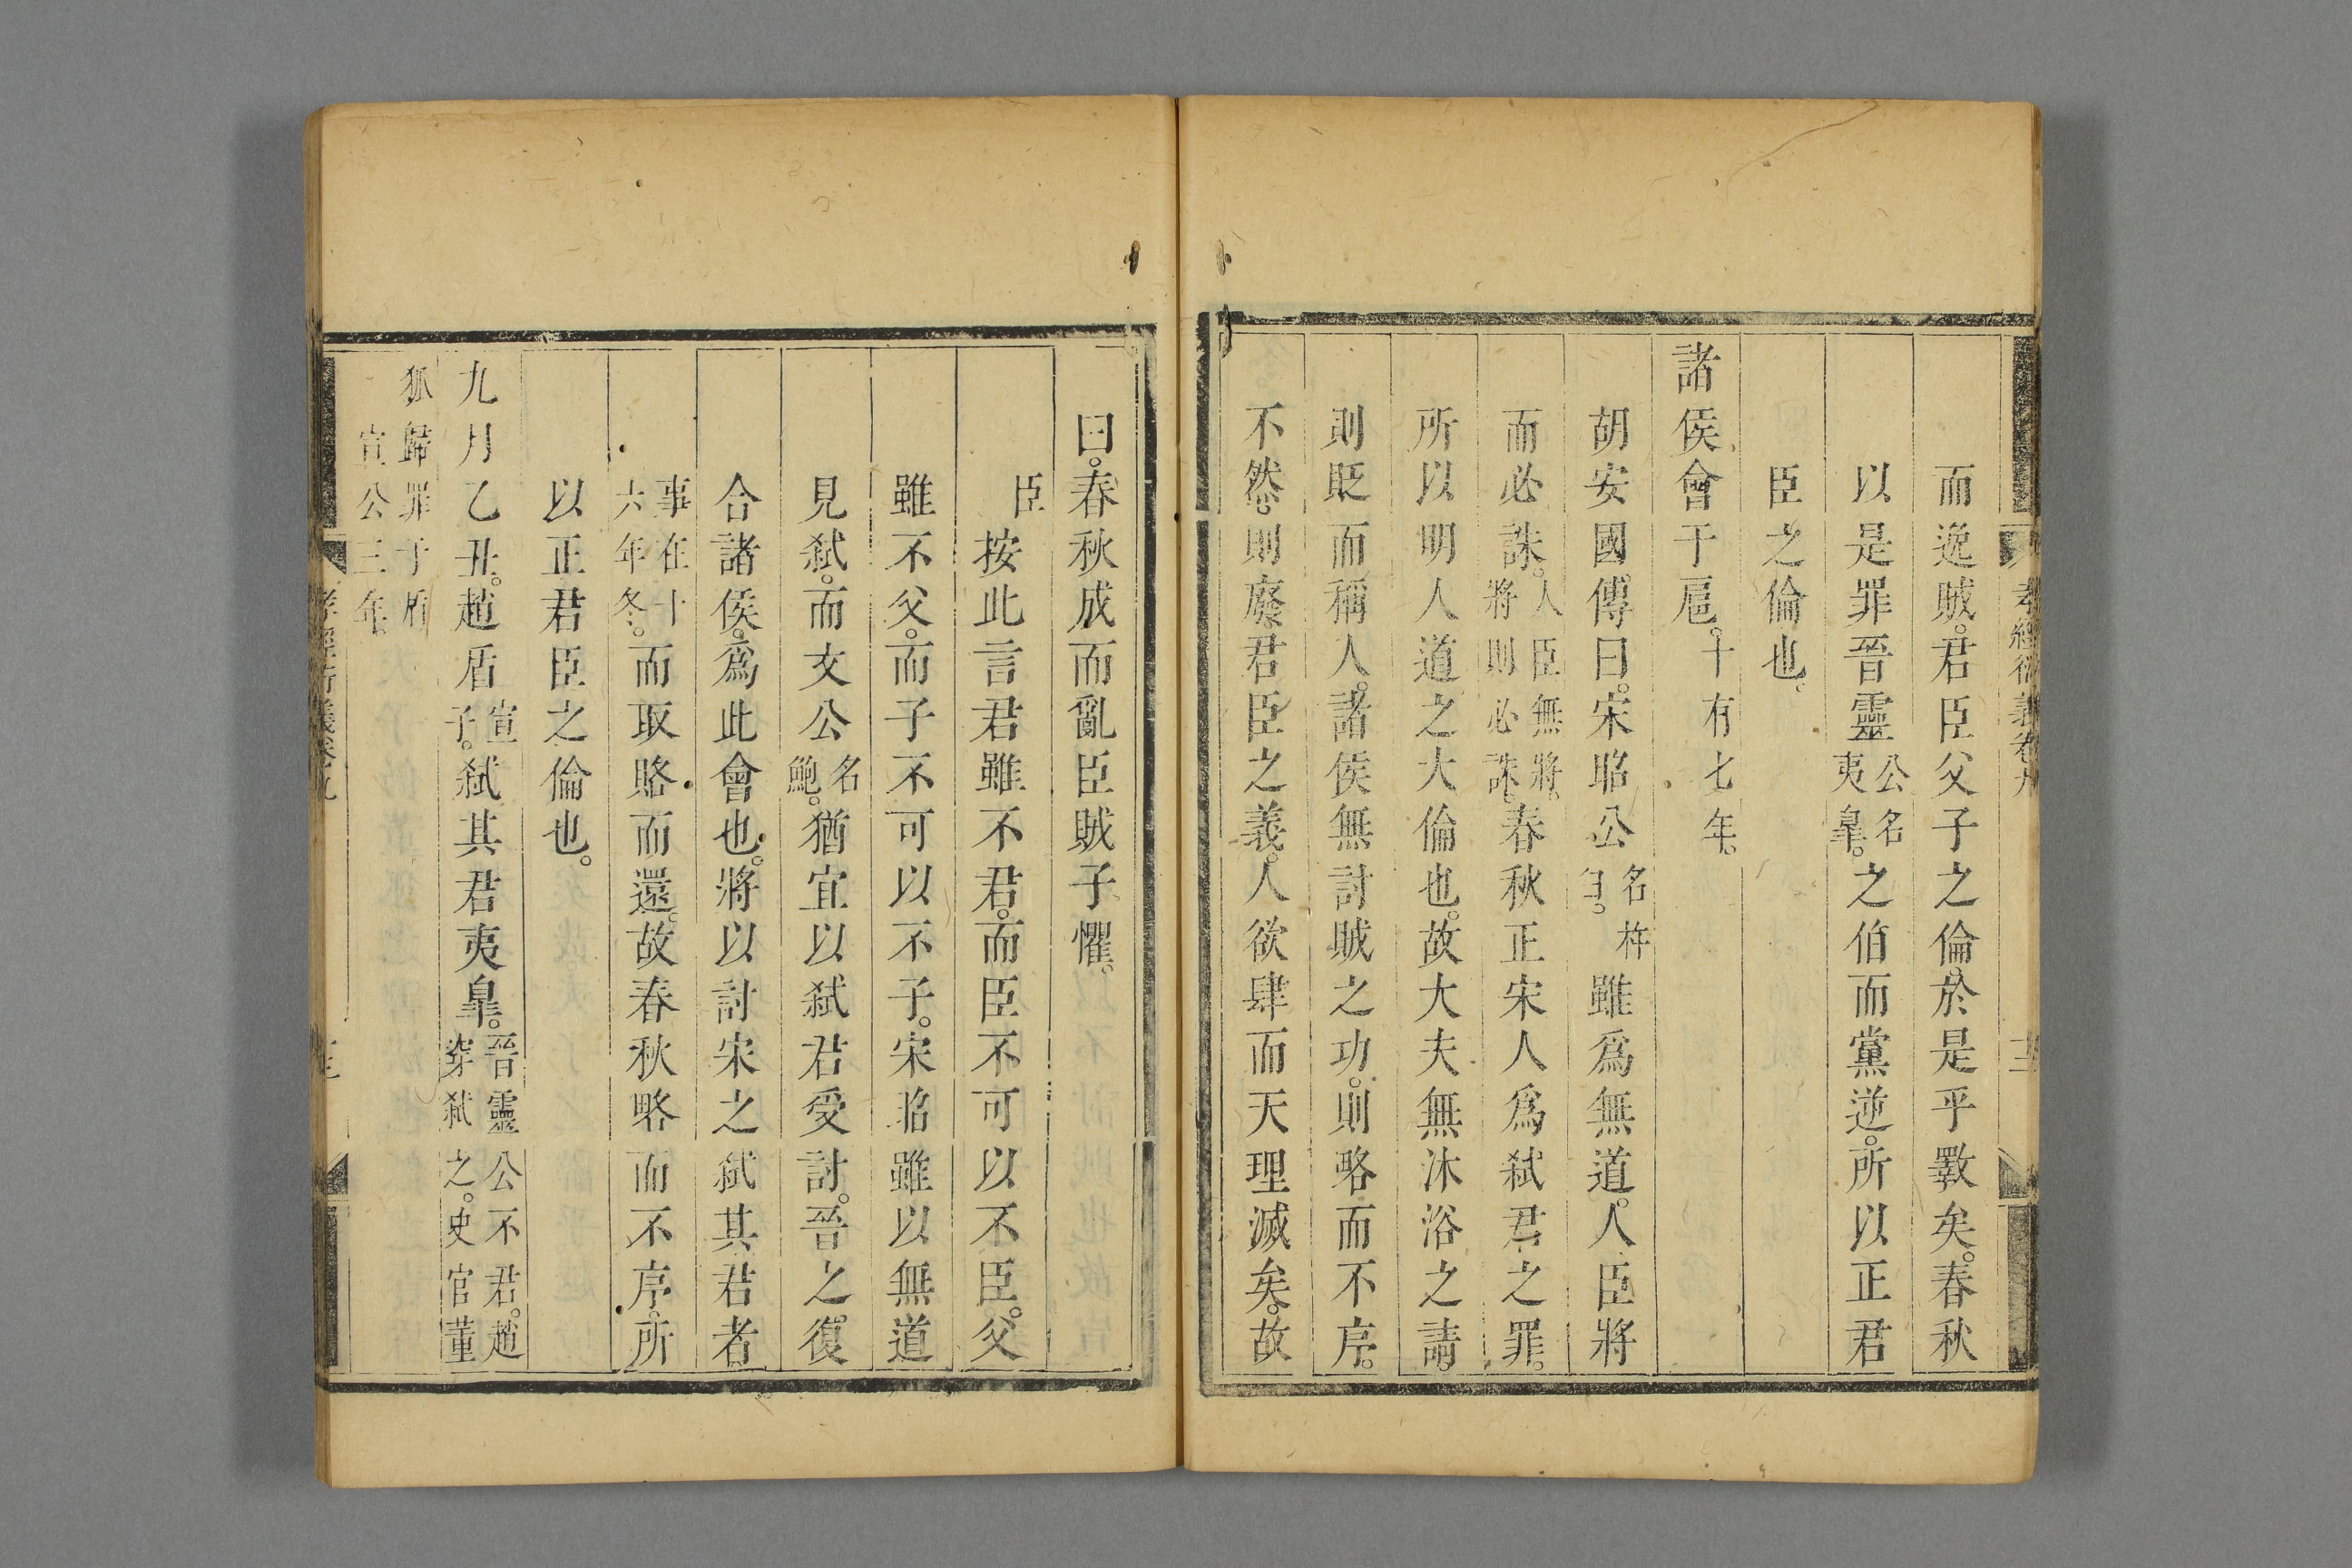 孝經衍義卷九
而逸賊。君臣父子之倫。於是乎斁矣。春秋
以是罪晉靈公名夷臯。之伯而黨逆。所以正君
臣之倫也。
諸侯會于扈。十有七年。
胡安國傳曰。宋昭公名杵臼。雖爲無道。人臣將
而必誅。人臣無將。將則必誅。春秋正宋人爲弒君之罪。
所以明人道之大倫也。故大夫無沐浴之請。
則貶而稱人。諸侯無討賊之功。則略而不序。
不然。則廢君臣之義。人欲肆而天理滅矣。故
曰。春秋成而亂臣賊子懼。
臣按此言君雖不君。而臣不可以不臣。父
雖不父。而子不可以不子。宋昭雖以無道
見弒。而文公名鮑。猶宜以弒君受討。晉之。復
合諸侯。爲此會也。將以討宋之弒其君者
事在十六年冬。而取賂而還。故春秋略而不序。所
以正君臣之倫也。
九月乙丑。趙盾宣子。弒其君夷臯。晉靈公不君。趙穿弒之。史官董
狐歸罪于盾宣公三年。
孝經衍義卷九